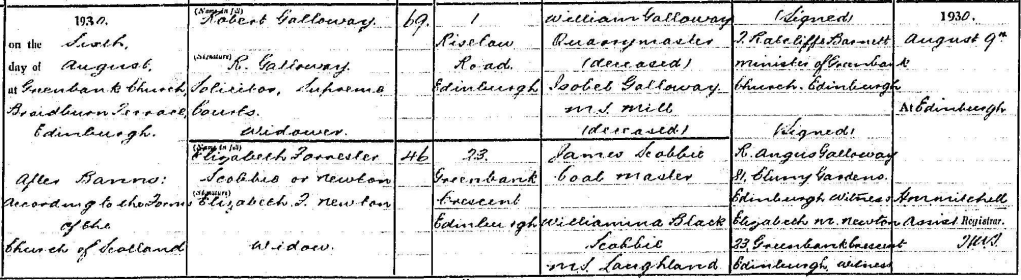 1930.
on the Sixth,
day of August,
at Greenbank Church,
Braidburn Terrace,
Edinburgh.
After Banns:
According to the Forms
of the
Church of Scotland
(Name in full)
Robert Galloway
(Signature)
R. Galloway.
Solicitor, Supreme
Courts.
Widower.
(Name in full)
Elizabeth Forrester
Scobbie or Newton
(Signature)
Elizabeth F. Newton
Widow.
69.
46
1
Riselaw
Road.
Edinburgh
23.
Greenbank
Crescent
Edinburgh
William Galloway
Quarrymaster
(deceased)
Isobel Galloway.
M.S. Mill
(deceased)
James Scobbie
Coal master
Williamina Black
Scobbie
M.S. Laughland
(Signed)
T. Ratcliffe Barnett
Minister of Greenbank
Church. Edinburgh
(Signed)
R. Angus Galloway
81, Cluny Gardens.
Edinburgh Witness
Elizabeth M. Newton
23, Greenbank Crescent
Edinburgh, Witness
1930.
August 9th
At Edinburgh
Assist Registrar.